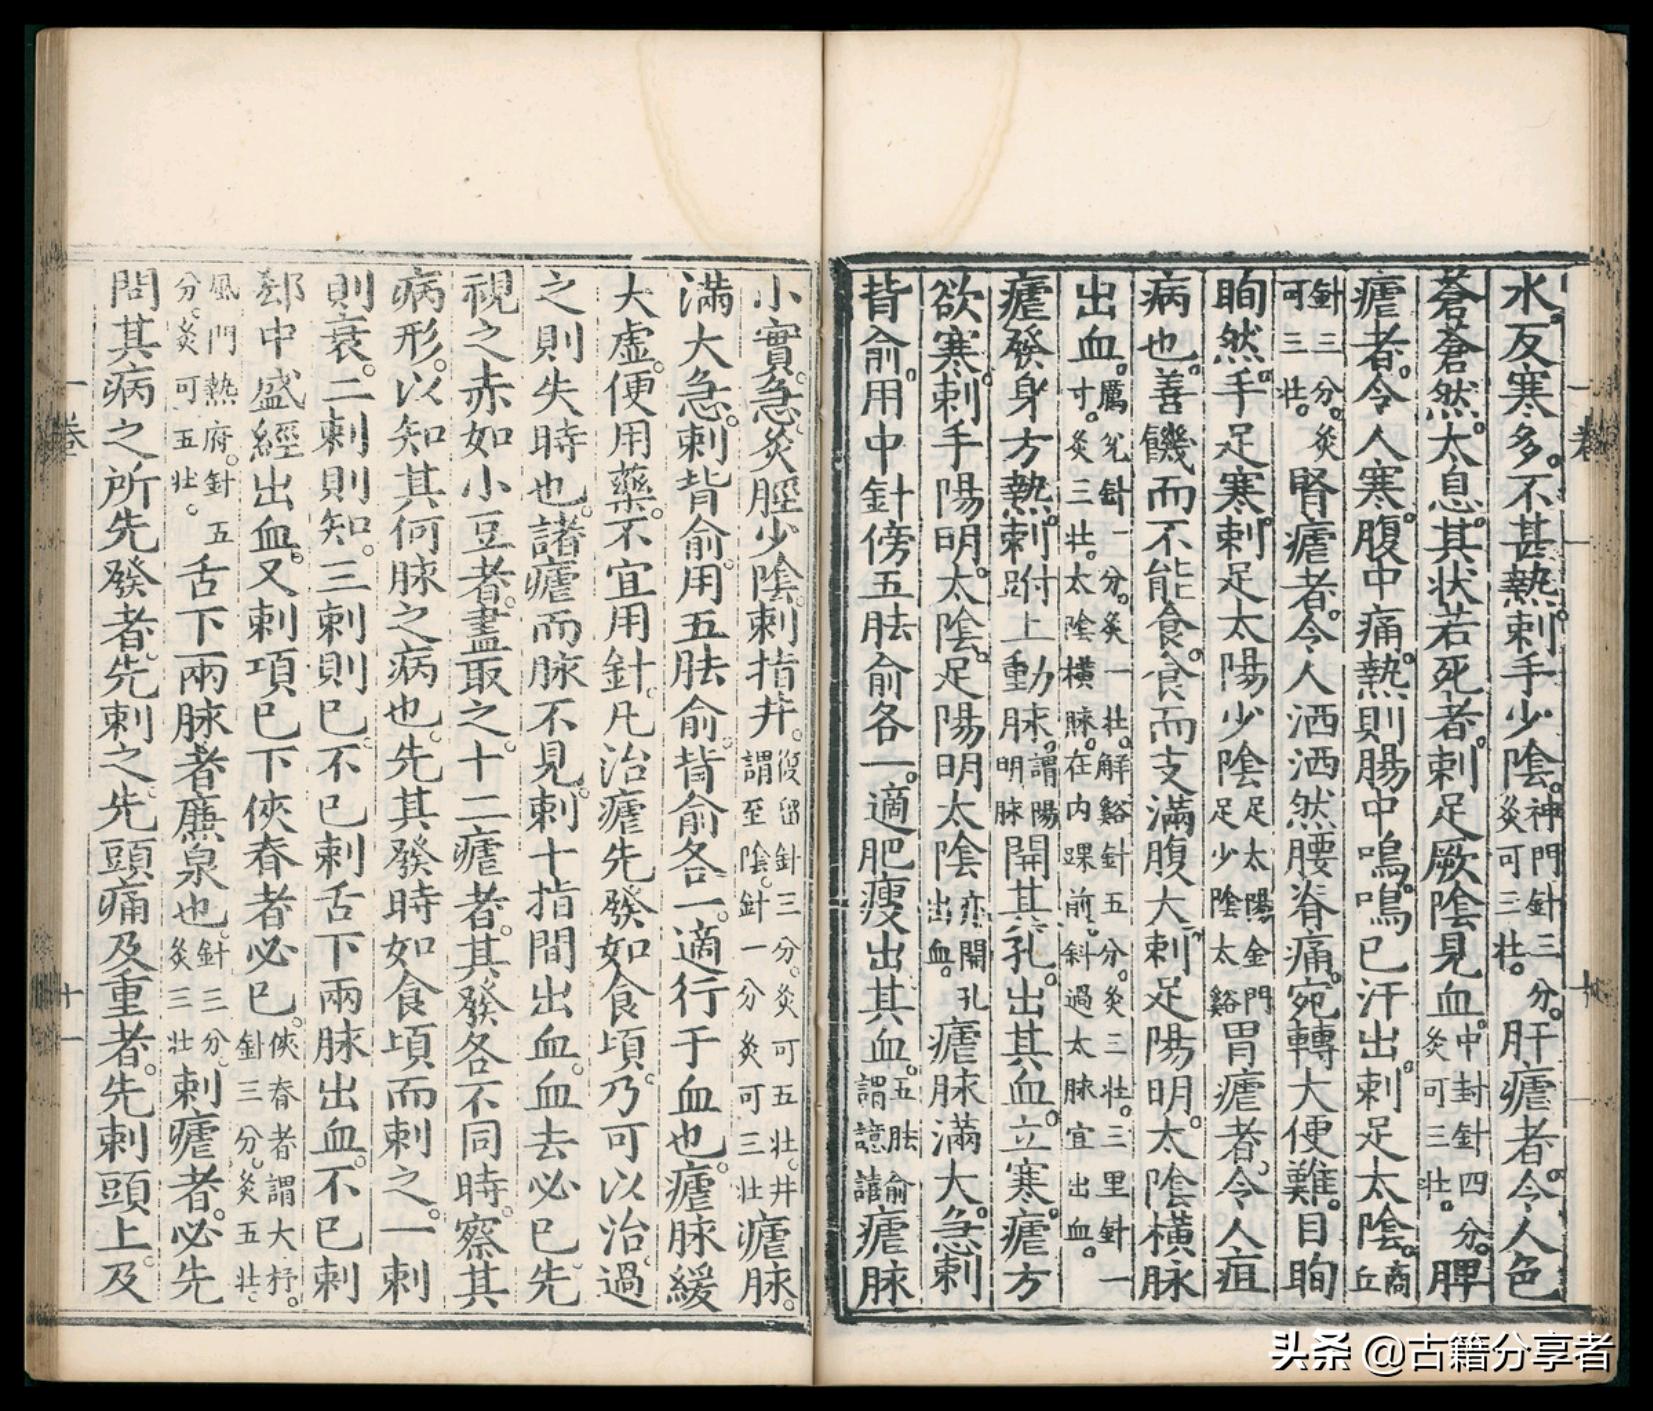 水。反寒多。不甚熱。刺手少陰。神門針三分。灸可三壯。肝瘧者。令人色
蒼蒼然。太息。其状若死者。刺足厥陰見血。中封針四分。灸可三壯。脾
瘧者。令人寒。腹中痛。熱則腸中鳴。鳴已汗出。刺足太陰。商丘
針三分。灸可三壯。腎瘧者。令人洒洒然腰脊痛。宛轉大便難。目眴
眴然。手足寒。刺足太陽少陰。足太陽金門足少陰太谿胃瘧者。令人疸
病也。善饑而不能食。食而支滿腹大。刺足陽明。太陰橫脉
出血。厲兌針一分。灸一壯。解谿針五分。灸三壯。三里針一寸。灸三壯。太陰橫脉。在内踝前。斜過太脉宜出血。
瘧發身方熱。刺跗上動脉。謂陽明脉開其孔。出其血。立寒。瘧方
欲寒。刺手陽明。太陰。足陽明太陰亦開孔出血。瘧脉滿大。急刺
背俞。用中針傍五胠俞各一。適肥瘦出其血。五胠俞謂譩譆瘧脉
小實。急灸脛少陰。刺指井。復留針三分。灸可五壯。井謂至陰。針一分灸可三壯瘧脉。
滿大急。刺背俞。用五胠俞背俞各一。適行于血也。瘧脉緩
大虛。便用藥。不宜用針。凡治瘧先發如食頃。乃可以治。過
之則失時也。諸瘧而脉不見。刺十指間出血。血去必已。先
視之赤如小豆者。盡取之。十二瘧者。其發各不同時。察其
病形。以知其何脉之病也。先其發時如食頃而刺之。一刺
則衰。二刺則知。三刺則已。不已刺舌下兩脉出血。不已刺
郄中盛經出血。又刺項已下俠脊者必已。俠脊者謂大杼。針三分。灸五壯。
風門熱府。針五分。灸可五壯。舌下兩脉者廉泉也。針三分。灸三壯刺瘧者。必先
問其病之所先發者。先刺之。先頭痛及重者。先刺頭上。及
卷一
十一
头条 @古籍分享者